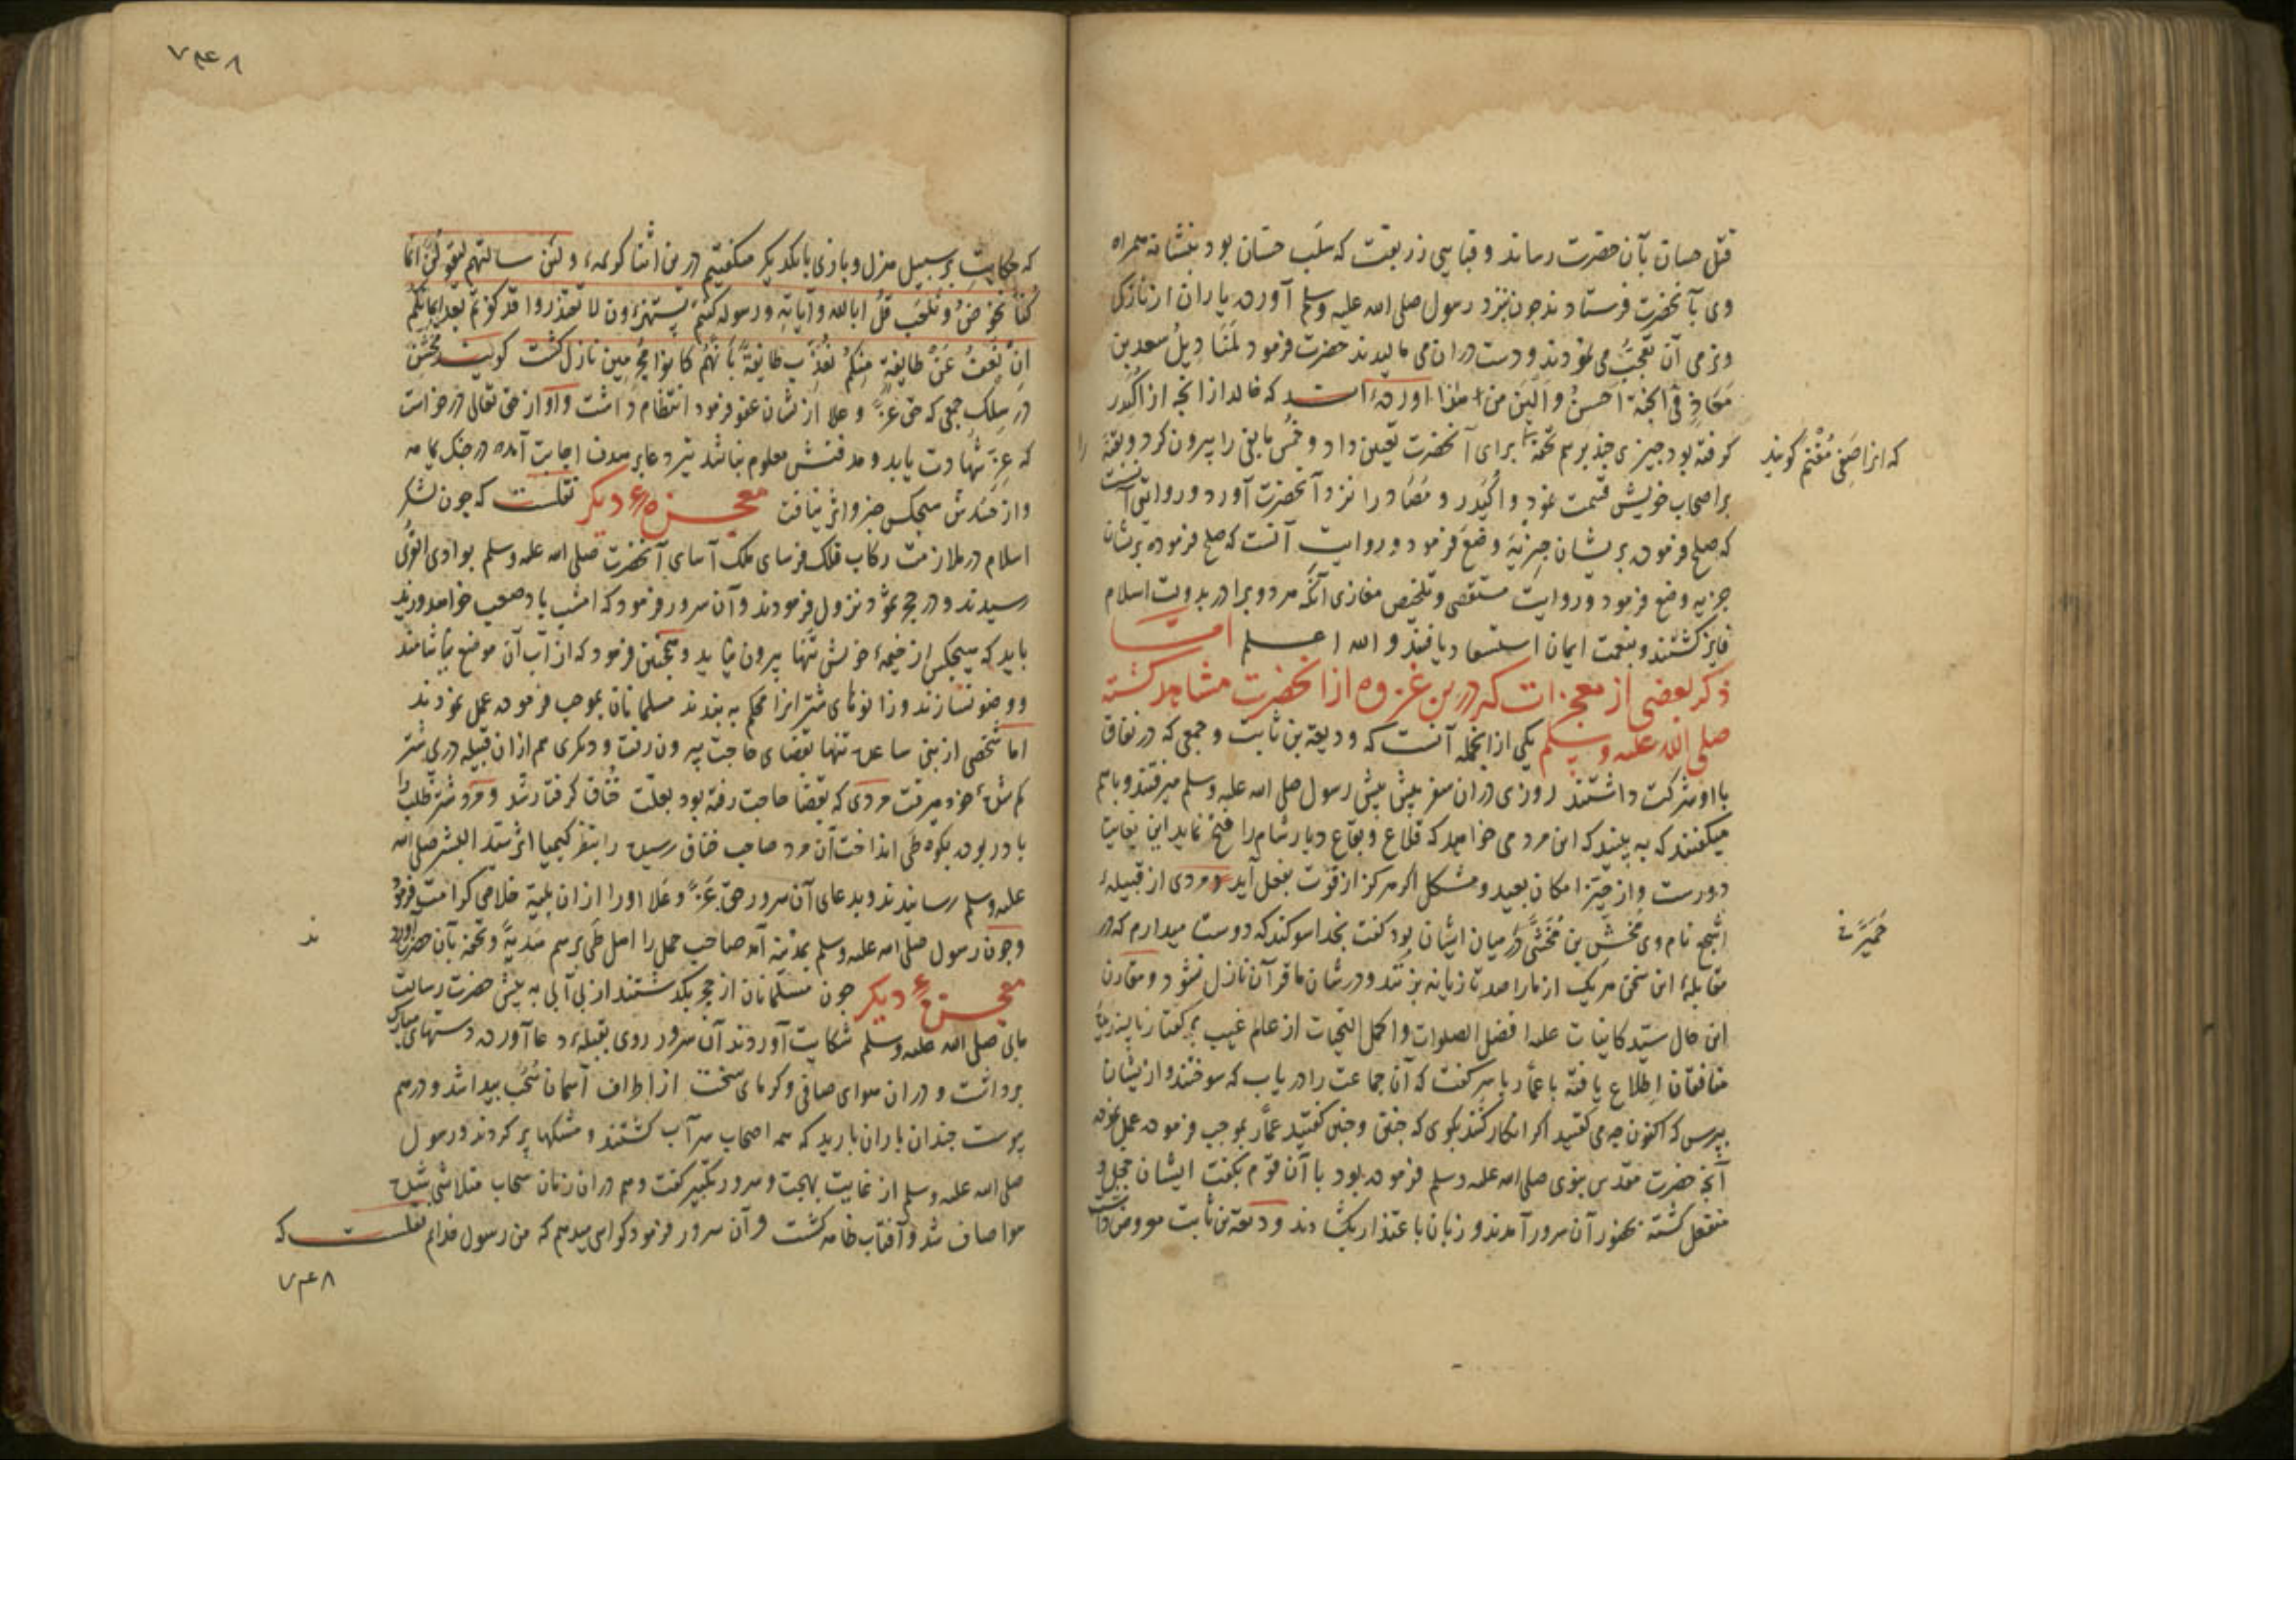 قتل حسان بآن حضرت رساند و قبایی زربفت که سلب حسان بود بنشانه همراه
وی بآنحضرت فرستادند چون نزد رسول صلی الله علیه وسلم آورده یاران از نازکی
و نرمی آن تعجب می نمودند و دست در ان می مالیدند حضرت فرمود لمنادیل سعد بن
معاذ فی الجنة احسن و الین من هذا آورده است که خالد از انجه از اکیدر
کرفته بود جیزی جند برسم تحفه برای آنحضرت تعیین داد و خمس مابقی را بیرون کرد و بقیة را
که انرا صفی مغنم کویند
بر اصحاب خویش قسمت نمود و اکیدر و مصاد را نزد آنحضرت آورد و روایتی آنست
که صلح فرموده بریشان جزیة وضع فرمود و روایت آنست که صلح فرموده بریشان
جزیه وضع فرمود و روایت مستقصی و تلخیص مغازی آنکه هر دو برادر بدولت اسلام
فایز کشتند و بنعمت ایمان استسعاد یافتند و الله اعلم امـــا
ذکر بعضی از معجزات که درین غزوه از انحضرت مشاهد کشته
صلی الله علیه وسلم یکی از انجمله آنست که ودیعة بن ثابت و جمعی که در نفاق
با او شرکت داشتند روزی در ان سفر پیش پیش رسول صلی الله علیه وسلم میرفتند و باهم
میکفتند که به بینید که این مرد می خواهد که قلاع و بقاع دیار شام را فتح نماید این بغایت
دورست و از حیز امکان بعید و مشکل اکر هرکز از قوت بفعل آید و مردی از قبیلهٔ
اشجع نام وی مخشی بن مخشی در میان ایشان بود کفت بخدا سوکند که دوست میدارم که در
مقابلهٔ این سخن هر یک از ما را صد تازیانه بزنند و در شان ما قرآن نازل نشود و مقارن
این حال سید کاینات علیه افضل الصلوات و اکمل التحیات از عالم غیب بر کفتار
منافقان اطلاع یافته با عمار یاسر کفت که آن جماعت را دریاب که سوختند و ازیشان
بپرس که اکنون چه می کفتید اکر انکار کنند بکوی که جنین و جنین کفتید عمار بموجب فرموده عمل نموده
آنچه حضرت مقدس نبوی صلی الله علیه وسلم فرموده بود با آن قوم بکفت ایشان خجل و
منفعل کشته بحضور آن سرور آمدند و زبان باعتذار بکشادند و ودیعة بن ثابت معروض داشت
۷۴۸
که حکایت بر سبیل هزل و بازی با یکدیکر میکفتیم درین اثنا کریمهٔ ولئن سالتهم لیقولن انما
کنا نخوض و نلعب قل ابالله و آیاته و رسوله کنتم تستهزؤن لا تعتذروا قد کفرتم بعد ایمانکم
ان نعف عن طایفة منکم نعذب طایفة بانهم کانوا مجرمین نازل کشت کویند مخشی
در سلک جمعی که حق عز و علا ازیشان عفو فرمود انتظام داشت و او از حق تعالی درخواست
که عز شهادت یابد و مدفنش معلوم نباشد تیر دعا بر هدف اجابت آمده در جنک یمامه
و از جسدش هیجکس خبر و اثر نیافت معجزهٔ دیکر نقلست که جون لشکر
اسلام در ملازمت رکاب فلک فرسای ملک آسای آنحضرت صلی الله علیه وسلم بوادی القری
رسیدند و در حجر ثمود نزول فرمودند و آن سرور فرمود که امشب باد صعب خواهد وزید
باید که هیجکس از خیمهٔ خویش تنها بیرون نیاید و همجنین فرمود که از آب آن موضع نیاشامند
و وضو نسازند و زانوهای شتر انرا محکم به بندند مسلمانان بموجب فرموده عمل نمودند
اما شخصی از بنی ساعده تنها بقضای حاجت بیرون رفت و دیکری هم از ان قبیله در پی شتر
کم شدهٔ خود میرفت مردی که بقضا حاجت رفته بود بعلت خناق کرفتار شد و مرد شتر طلب را
باد ربوده بکوه طی انداخت آن مرد صاحب خناق رسیده را بنظر کیمیا اثر سید البشر صلی الله
علیه وسلم رسانیدند و بدعای آن سرور حق عز و علا او را از ان بلیة خلاصی کرامت فرمود
و جون رسول صلی الله علیه وسلم بمدینه آمد صاحب جمل را اهل طی برسم هدیة و تحفه بآن حضرت آورد
ند
معجزهٔ دیکر جون مسلمانان از حجر بکذشتند از بی آبی به پیش حضرت رسالت
مابی صلی الله علیه وسلم شکایت آوردند آن سرور روی بقبلهٔ دعا آورده دستهای مبارک
برداشت و در ان هوای صافی و کرمای سخت از اطراف آسمان سحب پیدا شد و درهم
پیوست جندان باران بارید که همه اصحاب سیر آب کشتند و مشکها پر کردند و رسول
صلی الله علیه وسلم از غایت بهجت و سرور تکبیر کفت و هم در ان زمان سحاب متلاشی شده
هوا صاف شد و آفتاب ظاهر کشت و آن سرور فرمود کواهی میدهم که من رسول خدایم نقلست که
۷۴۸